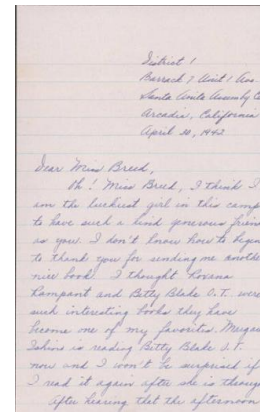 District 1
Barrack 7 Unit 1 Ave.
Santa Anita Assembly C
Arcadia, California
April 20, 1942
Dear Miss Breed,
Oh! Miss Breed, I think I
am the luckiest girl in this camp
to have such a kind generous friend
as you. I don't know how to begin
to thank you for sending me another
nice book. I thought Roxana
Rampant and Betty Blake O.T. were
such interesting books they have
become one of my favorites.
is reading Betty Blake O.T.
now and I won't be surprised if
I read it again after she is through
After hearing that the afternoon